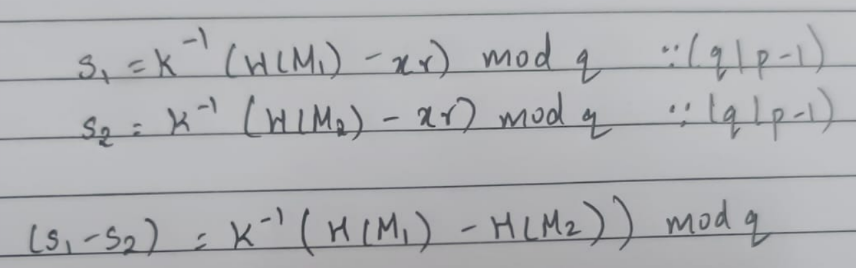 S₁ = K⁻¹ (H(M₁) - xr) mod q ∵ (q | p-1)
S₂ = K⁻¹ (H(M₂) - xr) mod q ∵ (q | p-1)
(S₁ - S₂) = K⁻¹ (H(M₁) - H(M₂)) mod q